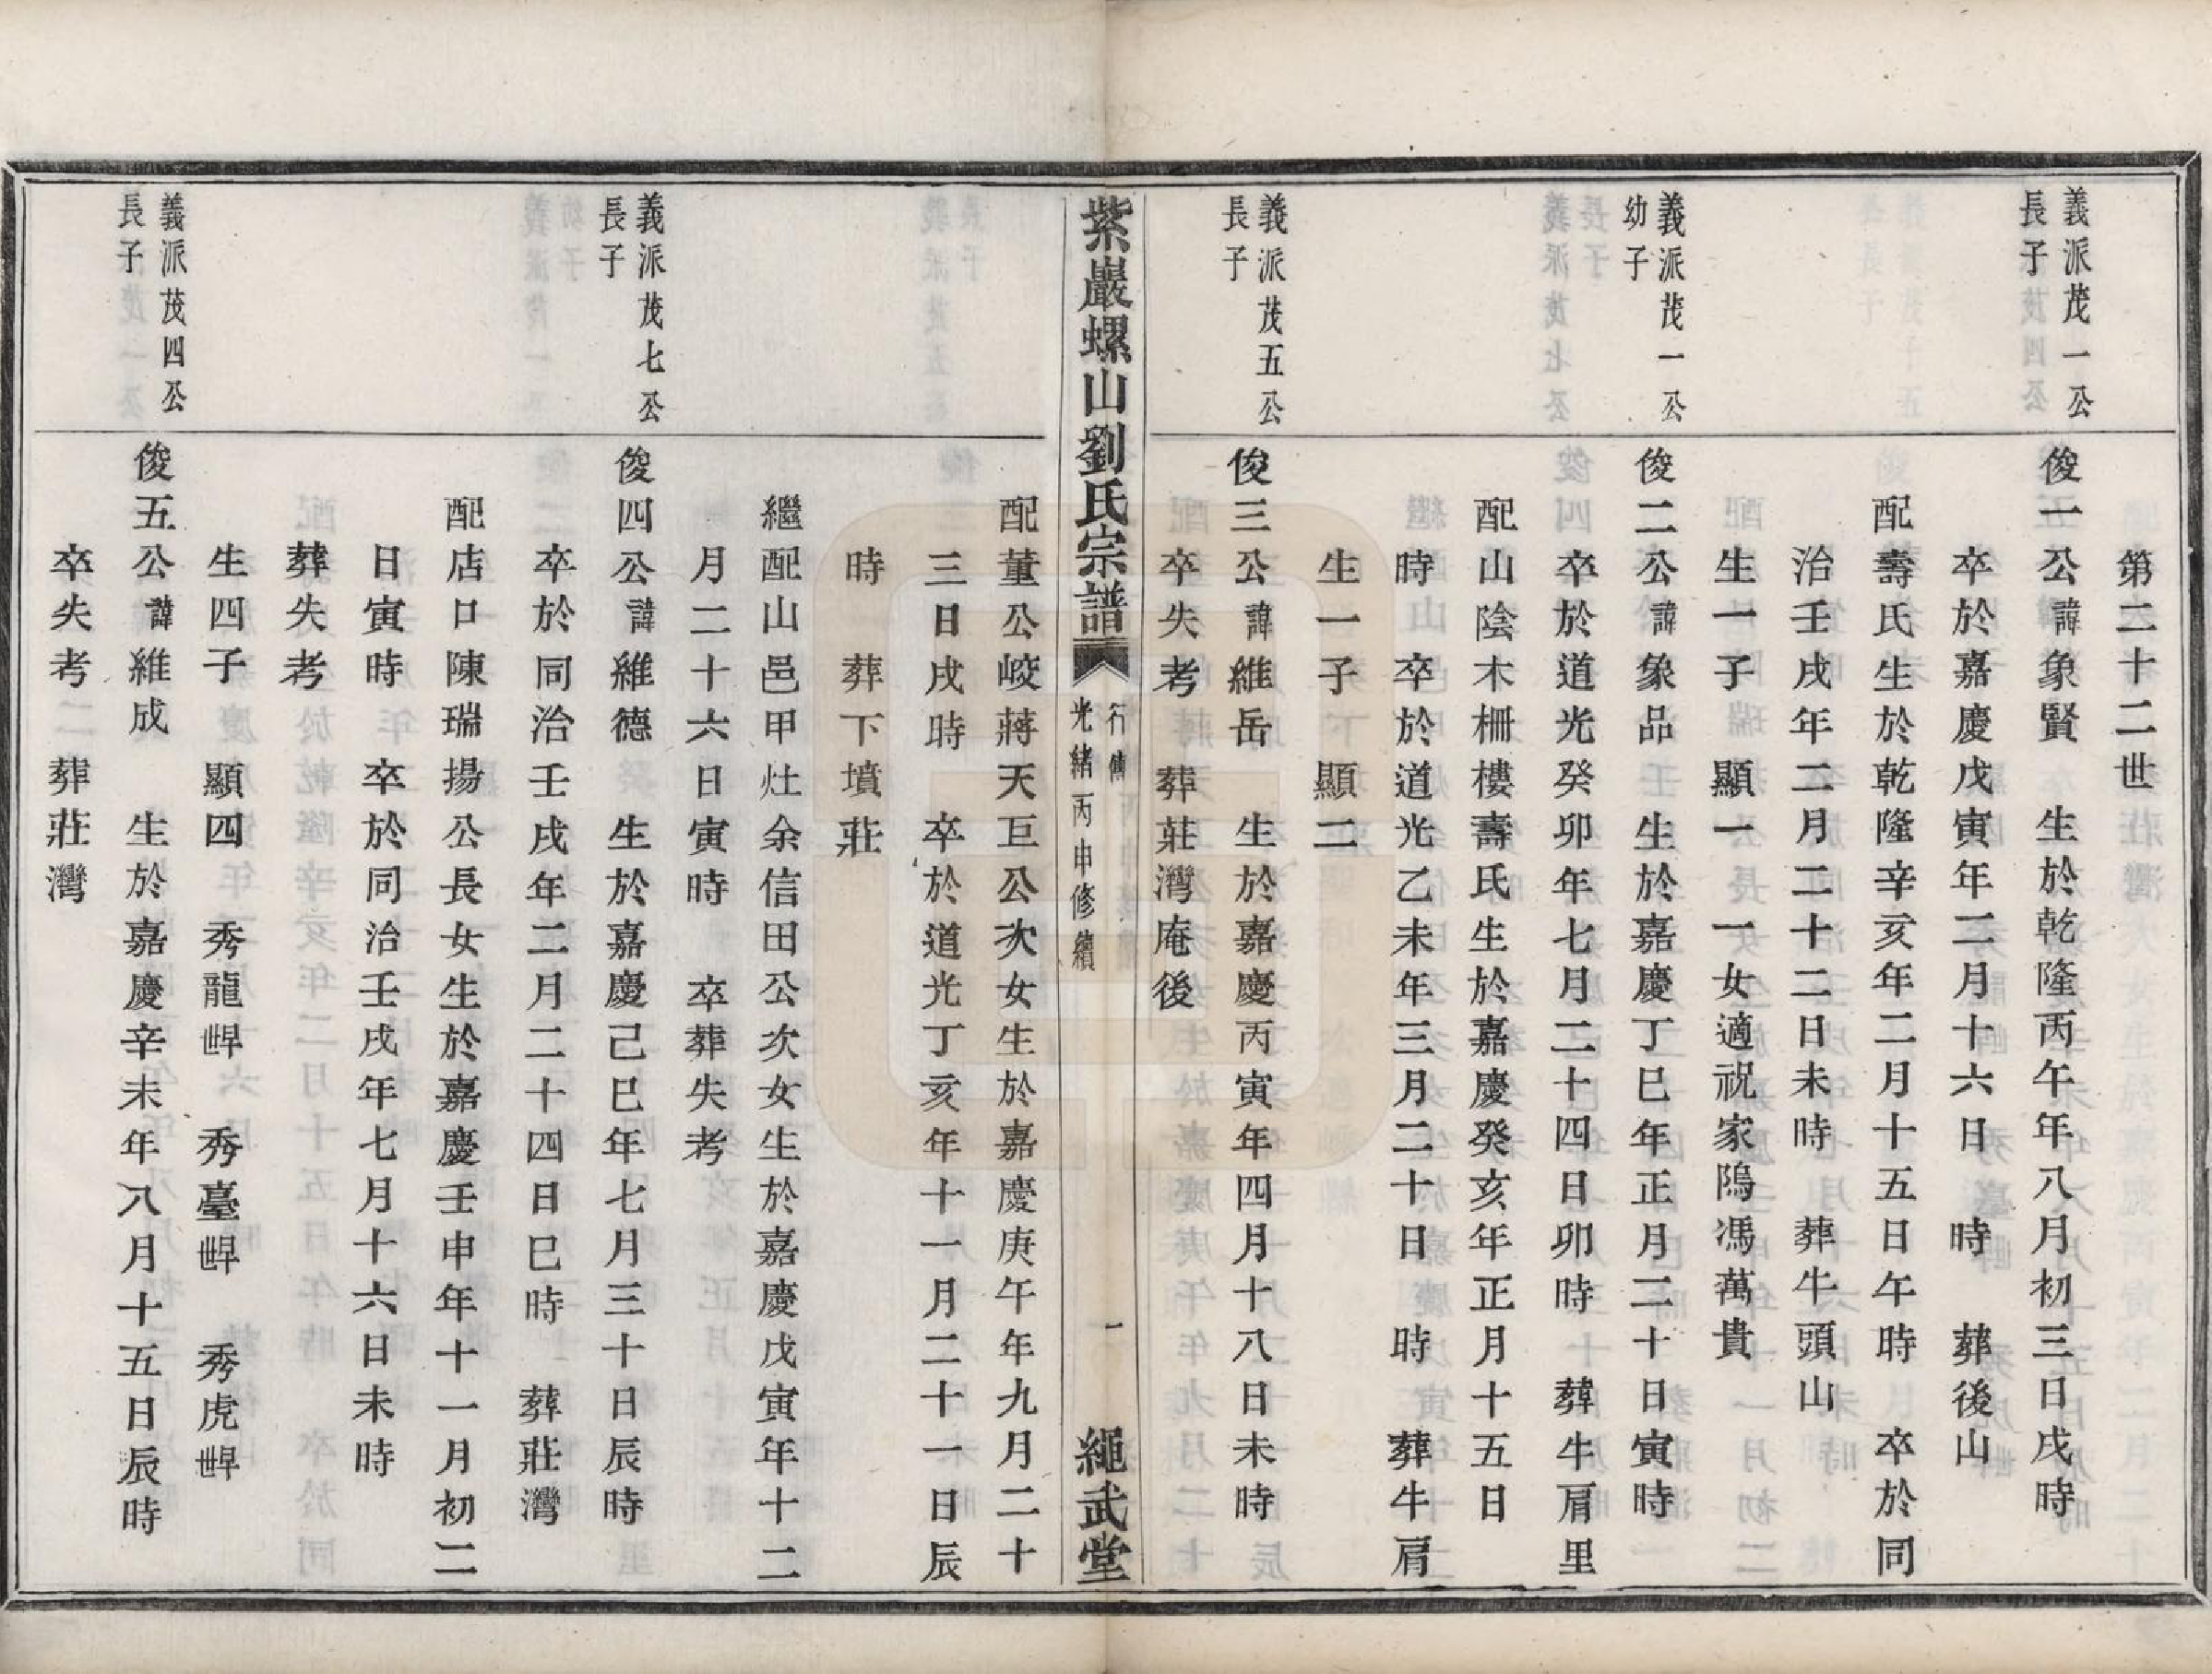 第二十二世
義派茂一公
長子
俊一公諱象賢　生於乾隆丙午年八月初三日戌時
卒於嘉慶戊寅年二月十六日　時　葬後山
配壽氏生於乾隆辛亥年二月十五日午時　卒於同
治壬戌年二月二十二日未時　葬牛頭山
生一子　顯一　一女適祝家隖馮萬貴
義派茂一公
幼子
俊二公諱象品　生於嘉慶丁巳年正月二十日寅時
卒於道光癸卯年七月二十四日卯時　葬牛肩里
配山陰木柵樓壽氏生於嘉慶癸亥年正月十五日
時　卒於道光乙未年三月二十日　時　葬牛肩
生一子　顯二
義派茂五公
長子
俊三公諱維岳　生於嘉慶丙寅年四月十八日未時
卒失考　葬莊灣庵後
紫巖螺山劉氏宗譜
行傳
光緒丙申修續
一
繩武堂
配董公峧蔣天巨公次女生於嘉慶庚午年九月二十
三日戌時　卒於道光丁亥年十一月二十一日辰
時　葬下墳莊
繼配山邑甲灶余信田公次女生於嘉慶戊寅年十二
月二十六日寅時　卒葬失考
義派茂七公
長子
俊四公諱維德　生於嘉慶己巳年七月三十日辰時
卒於同治壬戌年二月二十四日巳時　葬莊灣
配店口陳瑞揚公長女生於嘉慶壬申年十一月初二
日寅時　卒於同治壬戌年七月十六日未時
葬失考
生四子　顯四　秀龍　秀臺　秀虎
義派茂四公
長子
俊五公諱維成　生於嘉慶辛未年八月十五日辰時
卒失考　葬莊灣